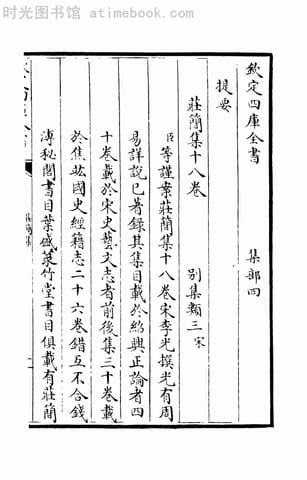 时光图书馆 www.atimebook.com
欽定四庫全書 集部四
提要
莊簡集十八卷 別集類三 宋
臣等謹案莊簡集十八卷宋李光撰光有周
易詳說已著録其集目載於紹興正論者四
十卷載於宋史藝文志者前後集三十卷載
於焦竑國史經籍志二十六卷錯互不合錢
溥秘閣書目葉盛菉竹堂書目俱載有莊簡